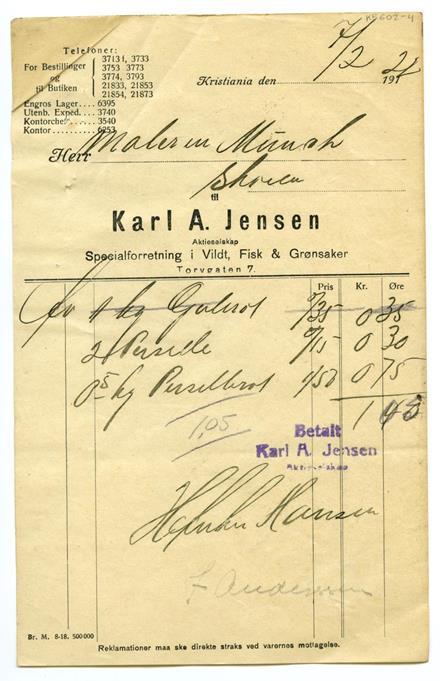 KB602-4
Telefoner:
For Bestillinger og til Butiken
37131, 3733
3753 3773
3774, 3793
21833, 21853
21854, 21873
Engros Lager.... 6395
Utenb. Exped. ... 3740
Kontorchef....... 3540
Kontor........... 6253
7/2
Kristiania den 191
Herr Maleren Münch
Skøien
til
Karl A. Jensen
Aktieselskap
Specialforretning i Vildt, Fisk & Grønsaker
Torvgaten 7.
Pris Kr. Øre
1 kg Gulerot 0/35 0 35
2 Persille 0/15 0 30
0.5 kg Persillerot 1/50 0 75
1
1,05
Betalt
Karl A. Jensen
Aktieselskap
Hansen
Andersen
Br. M. 8-18. 500 000
Reklamationer maa ske direkte straks ved varernes mottagelse.